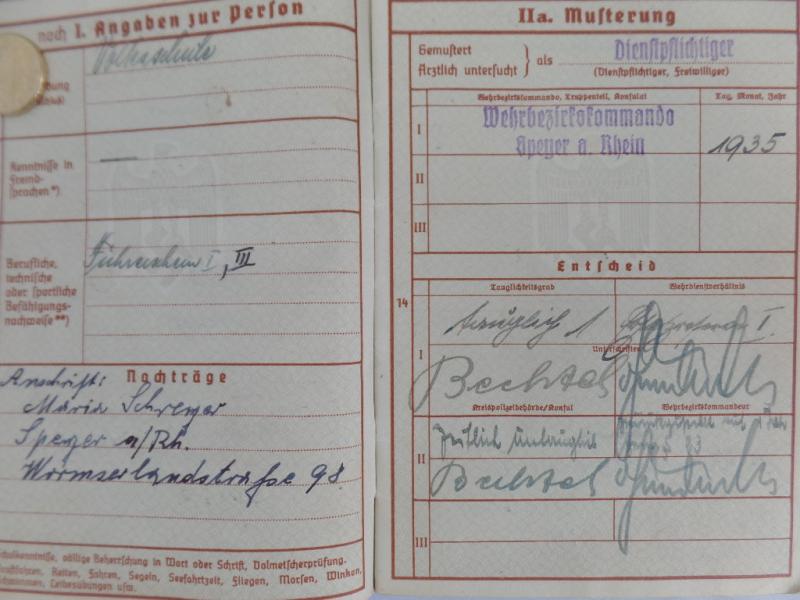 noch I. Angaben zur Person
Volksschule
Kenntnisse in
Fremd-
sprachen *)
Berufliche,
technische
oder sportliche
Befähigungs-
nachweise **)
Führerschein I, III
Nachträge
Anschrift:
Maria Schreyer
Speyer a/Rh.
Wormserlandstraße 98
völlige Beherrschung in Wort oder Schrift, Dolmetscherprüfung.
Reiten, Fahren, Segeln, Seefahrtzeit, Fliegen, Morsen, Winken,
Schwimmen, Leibesübungen usw.
IIa. Musterung
Gemustert
Ärztlich untersucht } als Dienstpflichtiger
(Dienstpflichtiger, Freiwilliger)
Wehrbezirkskommando, Truppenteil, Konsulat
Tag, Monat, Jahr
I Wehrbezirkskommando
Speyer a. Rhein 1935
II
III
Entscheid
Tauglichkeitsgrad
Wehrdienstverhältnis
14
tauglich 1 I.
Unterschriften
I Bechtel
Kreispolizeibehörde/Konsul
Wehrbezirkskommandeur
Zeitlich Untauglich
II
Bechtel
III